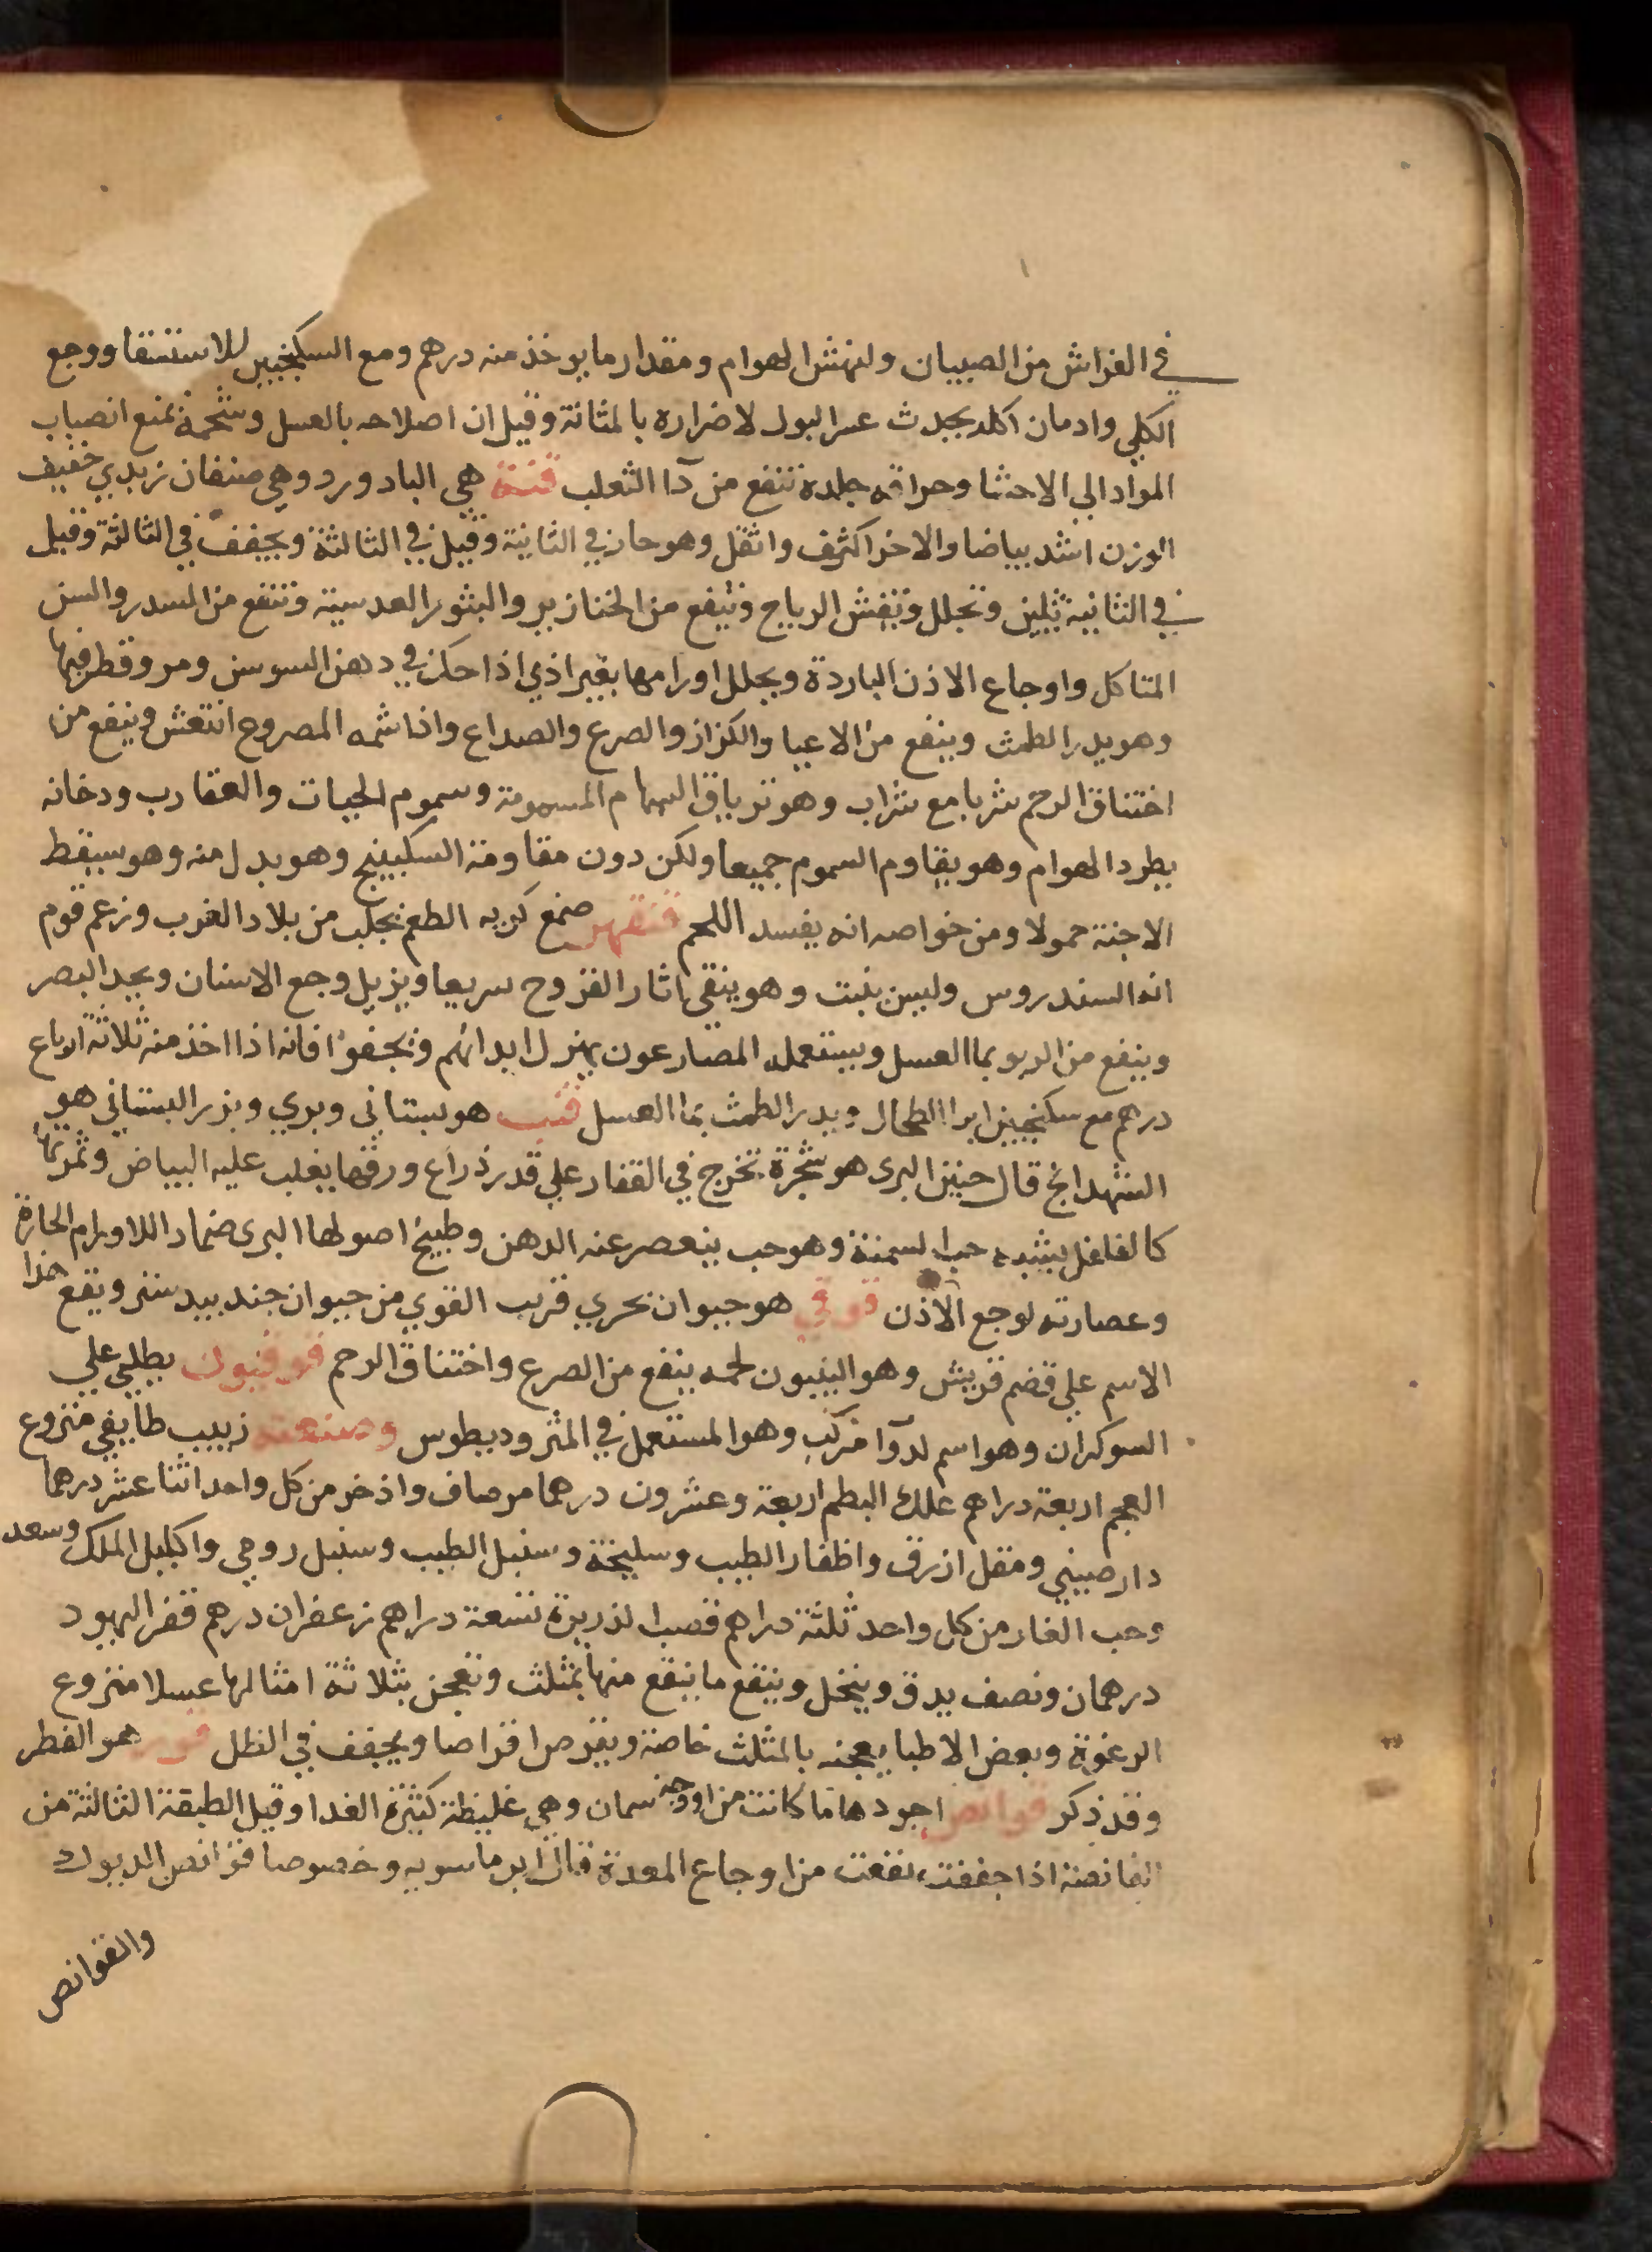 في الفراش من الصبيان ولنهش الهوام ومقدار ما يوخذ منه درهم ومع السكنجبين للاستسقا ووجع
الكلي وادمان اكله يحدث عسر البول لاضراره بالمثانة وقيل ان اصلاحه بالعسل وشحمه يمنع انصباب
المواد الي الاحشا وحراقه جلده تنفع من دآ الثعلب قنة هي البادورد وهي صنفان زبدي خفيف
الوزن اشد بياضا والاخر اكثف واثقل وهو حار في الثانية وقيل في الثالثة ويجفف في الثالثة وقيل
في الثانية تلين وتحلل وتفش الرياح وتنفع من الخنازير والبثور العدسية وتنفع من السدر والسن
المتاكل واوجاع الاذن الباردة ويحلل اورامها بغير اذي اذا حك في دهن السوسن ومر وقطر فيها
وهو يدر الطمث وينفع من الاعيا والكزاز والصرع والصداع واذا شمه المصروع انتعش وينفع من
اختناق الرحم شربا مع شراب وهو ترياق السهام المسمومة وسموم الحيات والعقارب ودخانه
يطرد الهوام وهو يقاوم السموم جميعا ولكن دون مقاومة السكبينج وهو بدل منه وهو يسقط
الاجنة حمولا ومن خواصه انه يفسد اللحم قنقهر صمغ كريه الطعم يجلب من بلاد الغرب وزعم قوم
انه السندروس وليس بثبت وهو ينقي اثار القروح سريعا ويزيل وجع الاسنان ويحد البصر
وينفع من الربو بما العسل ويستعمله المصارعون يهزل ابدانهم وتجففوا فانه اذا اخذ منه ثلاثة ارباع
درهم مع سكنجبين ابرا الطحال ويدر الطمث بما العسل قنب هو بستاني وبري وبزر البستاني هو
الشهدانج قال حنين البري هو شجرة تخرج في القفار علي قدر ذراع ورقها يغلب عليه البياض وثمرتها
كالفلفل يشبه حب السمنة وهو حب ينعصر عنه الدهن وطبيخ اصولها البري ضماد اللاورام الحارة
وعصارته لوجع الاذن قوقي هو حيوان بحري قريب القوي من حيوان جندبيدستر ويقع هذا
الاسم علي قضم قريش وهو الينبون لحمه ينفع من الصرع واختناق الرحم قوفيون يطلي علي
السوكران وهو اسم لدوآ مركب وهو المستعمل في المثروديطوس وصنعته زبيب طايفي منزوع
العجم اربعة دراهم علك البطم اربعة وعشرون درهما مر صاف واذخر من كل واحد اثنا عشر درهما
دارصيني ومقل ازرق واظفار الطيب وسليخة وسنبل الطيب وسنبل رومي واكليل الملك وسعد
وحب الغار من كل واحد ثلثة دراهم قصب الذريرة تسعة دراهم زعفران درهم قفر اليهود
درهمان ونصف يدق وينخل وينقع ما ينقع منها بمثلث وتعجن بثلاثة امثالها عسلا منزوع
الرغوة وبعض الاطبا يعجنه بالمثلث خاصة ويقرص اقراصا ويجفف في الظل هو الفطر
وقد ذكر قوانص اجودها ما كانت من اوجه سمان وهي غليظة كثيرة الغدا وقيل الطبقة الثالثة من
القانصة اذا جففت نفعت من اوجاع المعدة قال ابن ماسويه وخصوصا قوانص الديوك
والقوانص